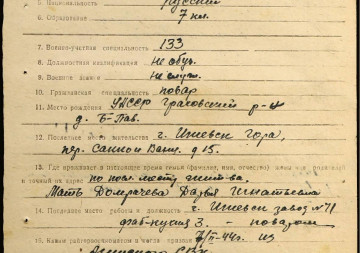 5. Национальность русский
6. Образование 7 кл.
7. Военно-учетная специальность 133
8. Должностная квалификация не обуч.
9. Военное звание не служ.
10. Гражданская специальность повар
11. Место рождения УАССР Граховский р-н
д. Б-Пав.
12. Постоянное место жительства г. Ижевск Гора,
пер. Санный д 15.
13. Где проживает в настоящее время семья (фамилия, имя, отчество) жены или родителей
и точный их адрес по нов. месту жит-ва.
Мать Домрачева Дарья Игнатьевна
14. Последнее место работы и должность г. Ижевск завод № 71
фаб-кухня 3. - поваром
15. Каким райвоенкоматом и когда призван II-44г. из